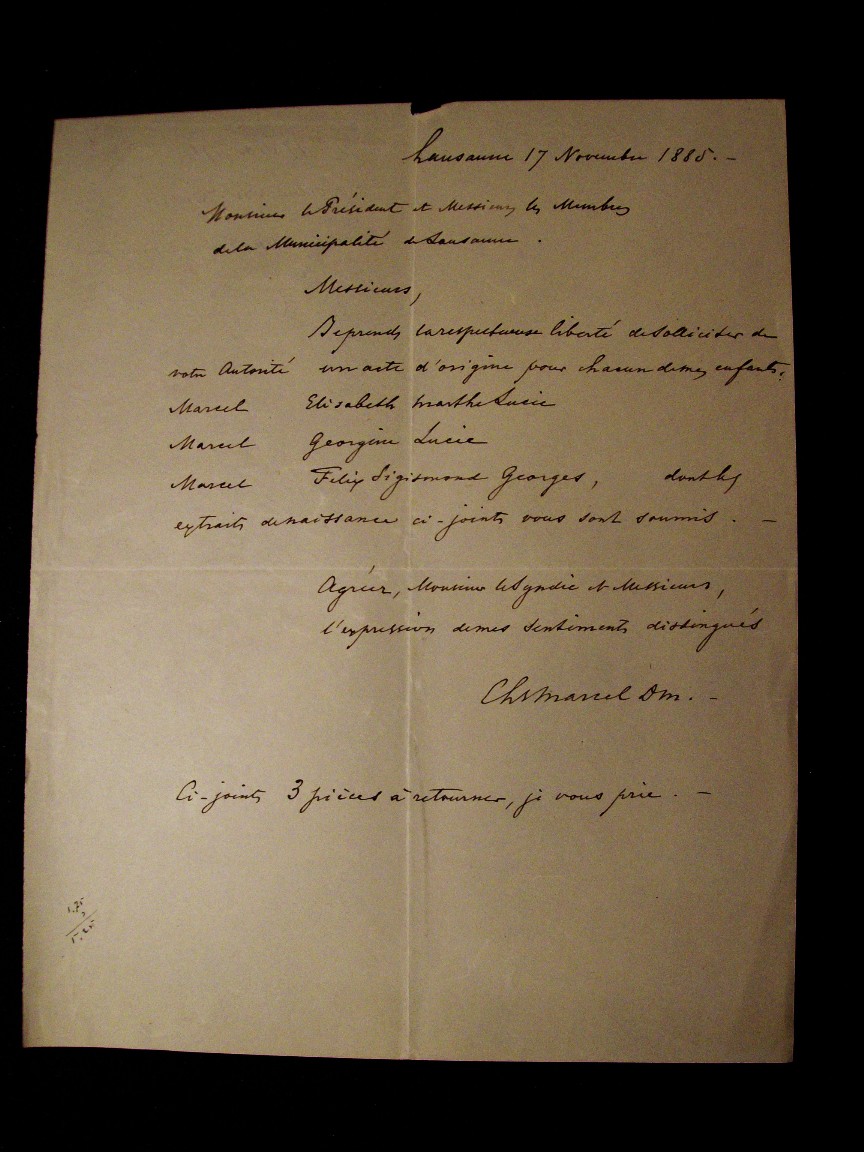 Lausanne 17 Novembre 1885. –
Monsieur le Président et Messieurs les Membres
de la Municipalité de Lausanne .
Messieurs,
Je prends la respectueuse liberté de solliciter de
votre Autorité un acte d'origine pour chacun de mes enfants:
Marcel Elisabeth Marthe Lucie
Marcel Georgine Lucie
Marcel Felix Sigismond Georges, dont les
extraits de naissance ci-joints vous sont soumis . –
Agréez, Monsieur le Syndic et Messieurs,
l'expression de mes sentiments distingués
Chs Marcel Dm. –
Ci-joints 3 pièces à retourner, je vous prie . –